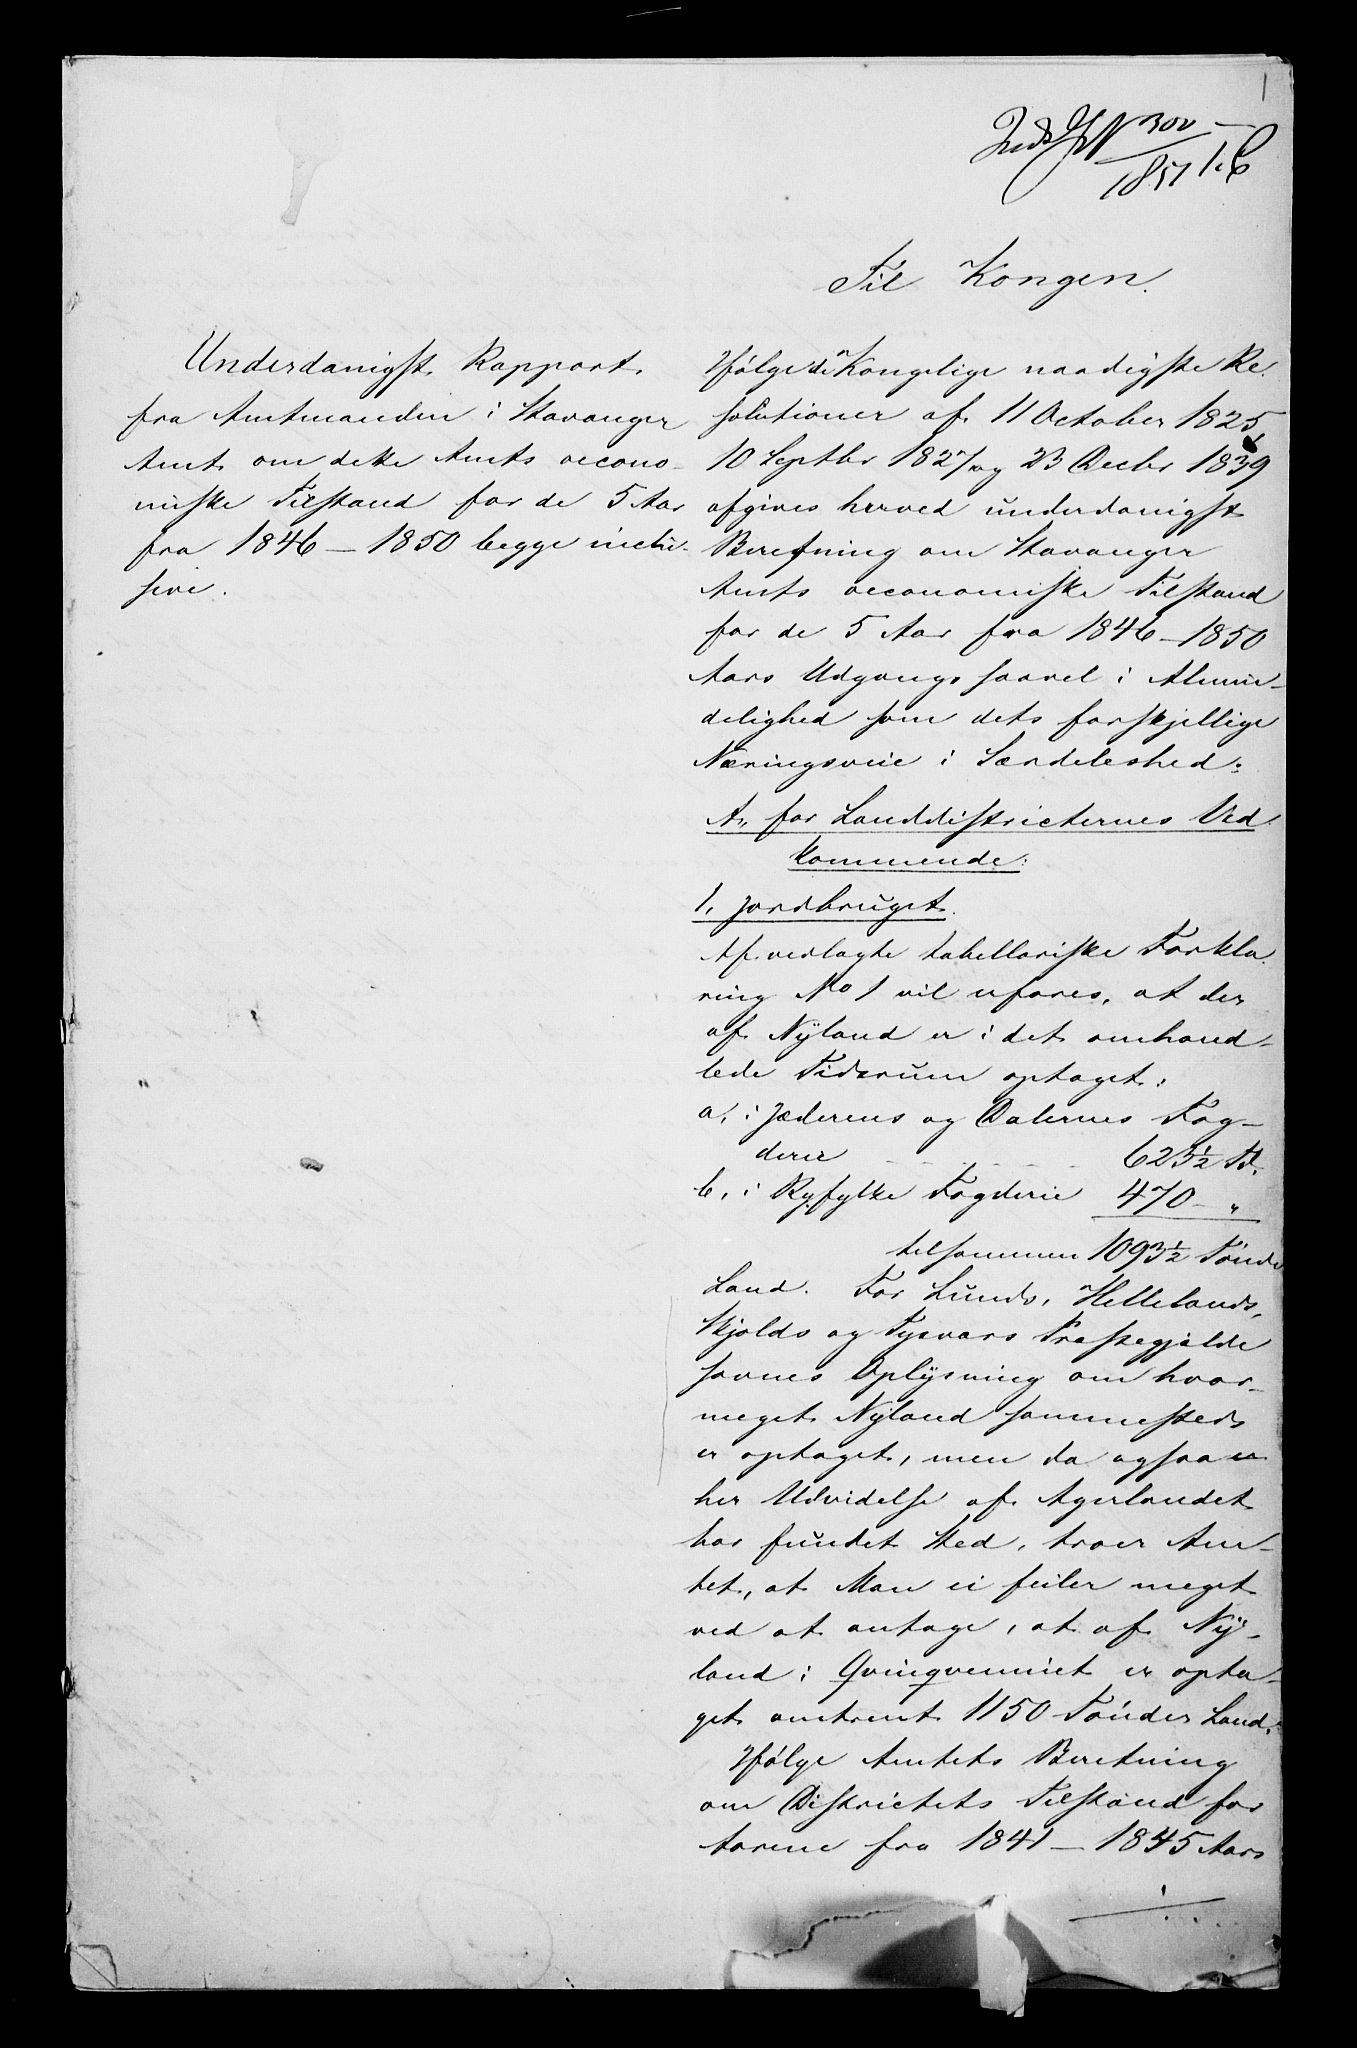 1
No 302
1851
Til Kongen.
Underdanigst Rapport
fra Amtmanden i Stavanger
Amt om dette Amts oecono-
miske Tilstand for de 5 Aar
fra 1846 – 1850 begge inclu-
sive.
Ifølge de Kongelige naadigste Re-
solutioner af 11 October 1825,
10 Septbr 1827 og 23 Decbr 1839
afgives herved underdanigst
Beretning om Stavanger
Amts oeconomiske Tilstand
for de 5 Aar fra 1846 – 1850
Aars Udgang saavel i Almin-
delighed som dets forskjellige
Næringsveie i Særdeleshed:
A, for Landdistricternes Ved-
kommende:
1, Jordbruget.
Af vedlagte tabellariske Forkla-
ring No 1 vil erfares, at der
af Nÿland er i det omhand-
lede Tidsrum optaget:
a, i Jæderens og Dalernes Fog-
derie 623½ Td.
b, i Ryfylke Fogderie 470 – "
tilsammen 1093½ Tønde
Land. For Lunds, Hellelands,
Skjolds og Tysværs Præstegjælde
savnes Oplÿsning om hvor-
meget Nÿland sammesteds
er optaget, men da ogsaa
her Udvidelse af Agerlandet
har fundet Sted, troer Am-
tet, at Man ei feiler meget
ved at antage, at af Nÿ-
land i Qvinqvenniet er opta-
get omtrent 1150 Tønder Land.
Ifølge Amtets Beretning
om Districtets Tilstand for
Aarene fra 1841 – 1845 Aars